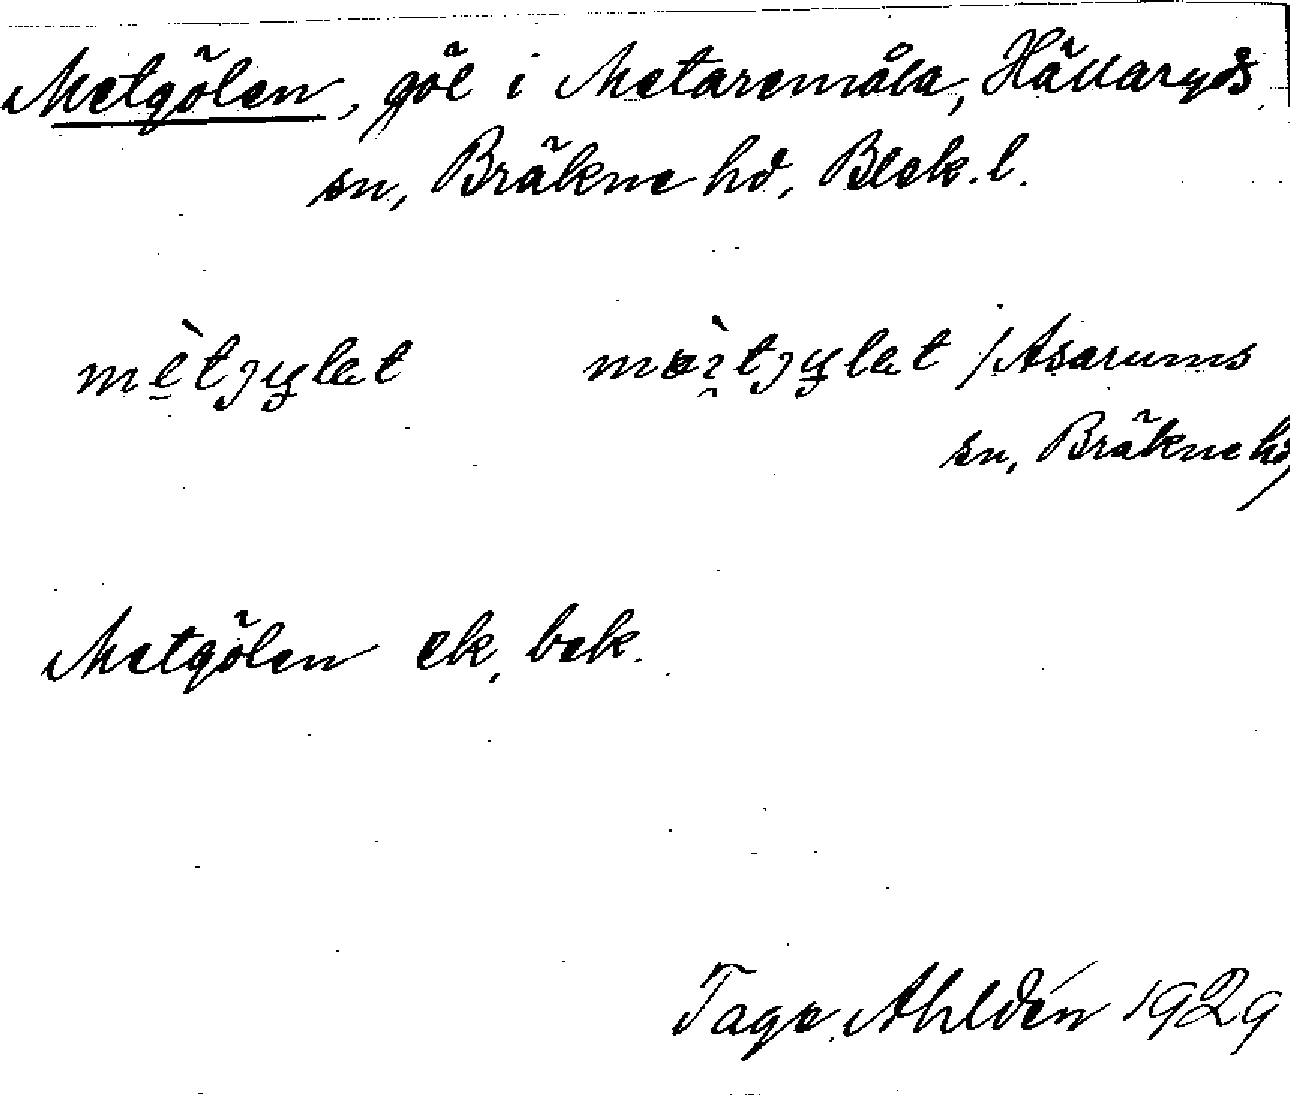 Metgölen, göl i Metaremåla, Hällaryds
sn, Bräkne hd, Blek. l.
mètȷylet mœ̀ıtȷylet /Asarums
sn, Bräkne hd/
Metgölen ek, bek.
Tage Ahldén 1929